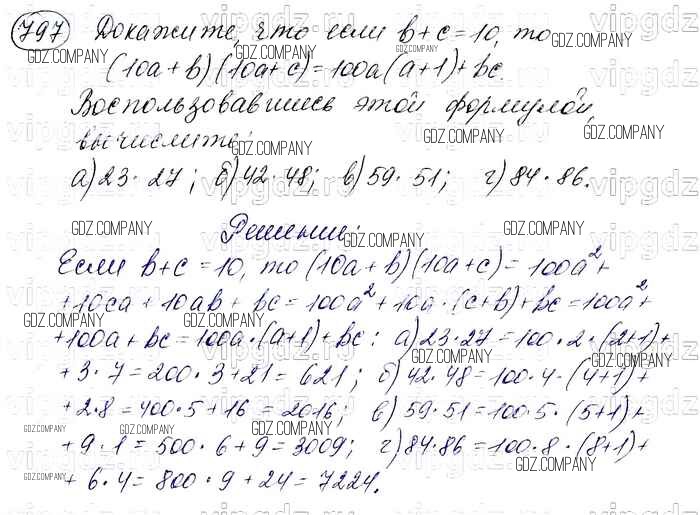 797 Докажите, что если b+c=10, то
(10a+b)(10a+c)=100a(a+1)+bc.
Воспользовавшись этой формулой,
вычислите:
а) 23·27; б) 42·48; в) 59·51; г) 84·86.
Решение:
Если b+c=10, то (10a+b)(10a+c)=100a²+
+10ca+10ab+bc=100a²+10a·(c+b)+bc=100a²+
+100a+bc=100a·(a+1)+bc: а) 23·27=100·2·(2+1)+
+3·7=200·3+21=621; б) 42·48=100·4·(4+1)+
+2·8=400·5+16=2016; в) 59·51=100·5·(5+1)+
+9·1=500·6+9=3009; г) 84·86=100·8·(8+1)+
+6·4=800·9+24=7224.
GDZ.COMPANY
vipgdz.ru